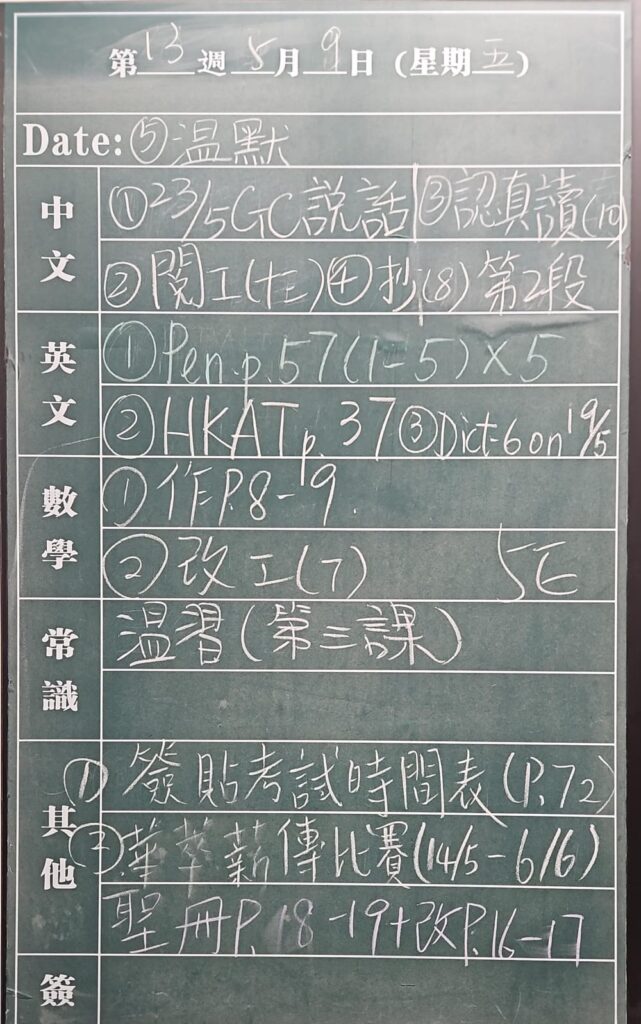 第13週5月9日(星期五)
Date:⑤温默
中文
①23/5GC説話|③認真讀(19)
②閱工(十三)④抄(8)第2段
英文
①Pen.p.57(1-5)×5
②HKAT p.37③Dict.6 on 19/5
數學
①作P.8-9.
②改工(7) 5E
常識
温習(第三課)
其他
①簽貼考試時間表(P.72)
②華萃薪傳比賽(14/5-6/6)
聖冊P.18-19+改P.16-17
簽